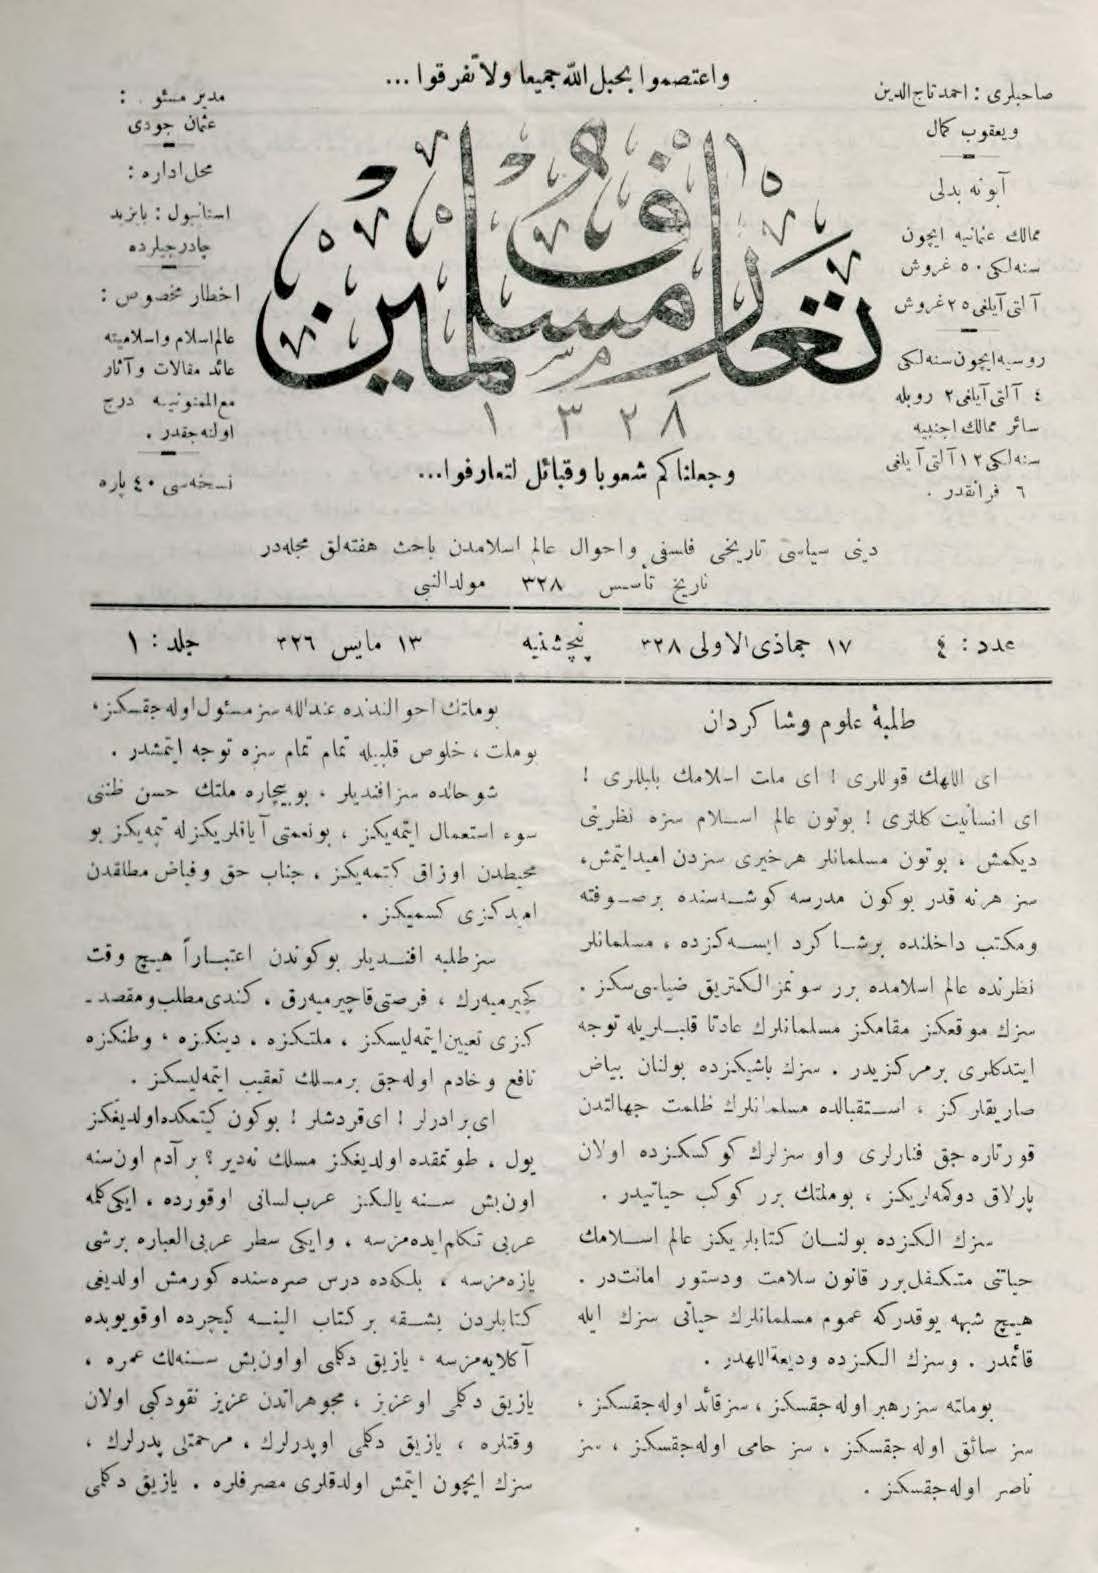 واعتصموا بحبل الله جميعا ولا تفرقوا ...
صاحبلری : احمد تاج‌الدین
ویعقوب کمال
آبونه بدلی
ممالك عثمانیه ایچون
سنه‌لكی ٥٠ غروش
آلتی آیلغی ٢٥ غروش
روسیه ایچون سنه‌لکی
٤ آلتی آیلغی ٢ روبله
سائر ممالك اجنبیه
سنه‌لکی ١٢ آلتی آیلغی
٦ فرانقدر .
تعارف مسلمین
١٣٢٨
وجعلناکم شعوبا وقبائل لتعارفوا ...
مدیر مسئو :
عثمان جودی
محل اداره :
استانبول : بایزید
چادرجیلرده
اخطار مخصوص :
عالم اسلام واسلامیته
عائد مقالات وآثار
مع‌الممنونیه درج
اولنه‌جقدر .
نسخه‌سی ٤٠ پاره
دینی سیاسی تاریخی فلسفی واحوال عالم اسلامدن باحث هفته‌لق مجله‌در
تاریخ تأسس ٣٢٨ مولدالنبی
عدد : ٤ ١٧ جماذی‌الاولی ٣٢٨ پنچشنبه ١٣ مایس ٣٢٦ جلد : ١
طلبۀ علوم وشاکردان
ای اللهك قوللری ! ای ملت اسلامك بلبللری !
ای انسانیت کللری ! بوتون عالم اسلام سزه نظرینی
دیکمش ، بوتون مسلمانلر هرخیری سزدن امیدایتمش،
سز هرنه قدر بوکون مدرسه کوشه‌سنده برصوفته
ومکتب داخلنده برشاکرد ایسه‌کزده ، مسلمانلر
نظرنده عالم اسلامده برر سونمز الکتریق ضیاسی‌سکز .
سزك موقعکز مقامکز مسلمانلرك عادتا قلبلریله توجه
ایتدکلری برمرکزیدر . سزك باشیکزده بولنان بیاض
صاریقلرکز ، استقبالده مسلمانلرك ظلمت جهالتدن
قورتاره‌جق فنارلری واو سزلرك کوکسکزده اولان
پارلاق دوکمه‌لریکز ، بوملتك برر کوکب حیاتیدر .
سزك الکزده بولنان کتابلریکز عالم اسلامك
حیاتنی متکفل برر قانون سلامت ودستور امانت‌در .
هیچ شبهه یوقدرکه عموم مسلمانلرك حیاتی سزك ایله
قائمدر . وسزك الکزده ودیعة‌اللهدر .
بوملته سز رهبر اوله‌جقسکز ، سز قائد اوله‌جقسکز ،
سز سائق اوله جقسکز ، سز حامی اوله‌جقسکز ، سز
ناصر اوله‌جقسکز .
بوملتك احوالندنده عندالله سز مسئول اوله‌جقسکز،
بوملت ، خلوص قلبیله تمام تمام سزه توجه ایتمشدر .
شوحالده سز افندیلر ، بو بیچاره ملتك حسن ظننی
سوء استعمال ایتمه‌یکز ، بونعمتی آیاقلریکزله تپمه‌یکز بو
محیطدن اوزاق کتمه‌یکز ، جناب حق وفیاض مطلقدن
امیدکزی کسمیکز .
سز طلبه افندیلر بوکوندن اعتباراً هیچ وقت
کچیرمیه‌رك ، فرصتی قاچیرمیه‌رق ، کندی مطلب ومقصد-
کزی تعیین ایتمه‌لیسکز ، ملتکزه ، دینکزه ، وطنکزه
نافع وخادم اوله‌جق برمسلك تعقیب ایتمه‌لیسکز .
ای برادرلر ! ای قردشلر ! بوکون کیتمکده اولدیغکز
یول ، طوتمقده اولدیغکز مسلك نه‌دیر ؟ بر آدم اون سنه
اون بش سنه یالکز عرب لسانی اوقورده ، ایکی کلمه
عربی تکلم ایده‌مزسه ، وایکی سطر عربی‌العباره برشی
یازه‌مزسه ، بلکه‌ده درس صره‌سنده کورمش اولدیغی
کتابلردن بشقه برکتاب الینه کچرده اوقویوبده
آکلایه‌مزسه ، یازیق دکلمی اواون بش سنه‌لك عمره ،
یازیق دکلمی اوعزیز ، مجوهراتدن عزیز نقودکبی اولان
وقتلره ، یازیق دکلمی اوپدرلرك ، مرحمتلی پدرلرك ،
سزك ایچون ایتمش اولدقلری مصرفلره . یازیق دکلمی